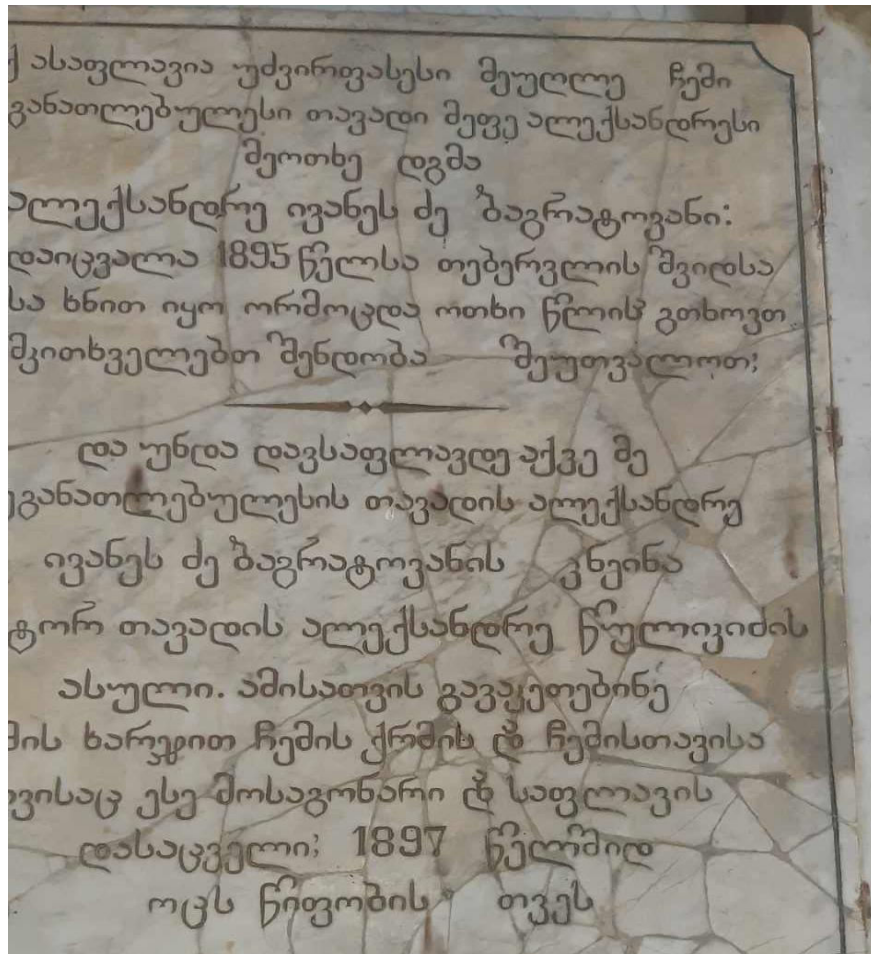 ქ ასაფლავია უძვირფასესი მეუღლე ჩემი
განათლებულესი თავადი მეფე ალექსანდრესი
მეოთხე დგმა
ალექსანდრე ივანეს ძე ბაგრატოვანი:
დაიცვალა 1895 წელსა თებერვლის შვიდსა
სა ხნით იყო ორმოცდა ოთხი წლის გთხოვთ
მკითხველებთ შენდობა შეუთვალოთ:
და უნდა დავსაფლავდე აქვე მე
განათლებულესის თავადის ალექსანდრე
ივანეს ძე ბაგრატოვანის კნეინა
ტორ თავადის ალექსანდრე წულუკიძის
ასული. ამისათვის გავაკეთებინე
მის ხარჯით ჩემის ქრმის და ჩემისთავისა
ვისაც ესე მოსაგონარი და საფლავის
დასაცველი: 1897 წელშიდ
ოცს წიფობის თვეს